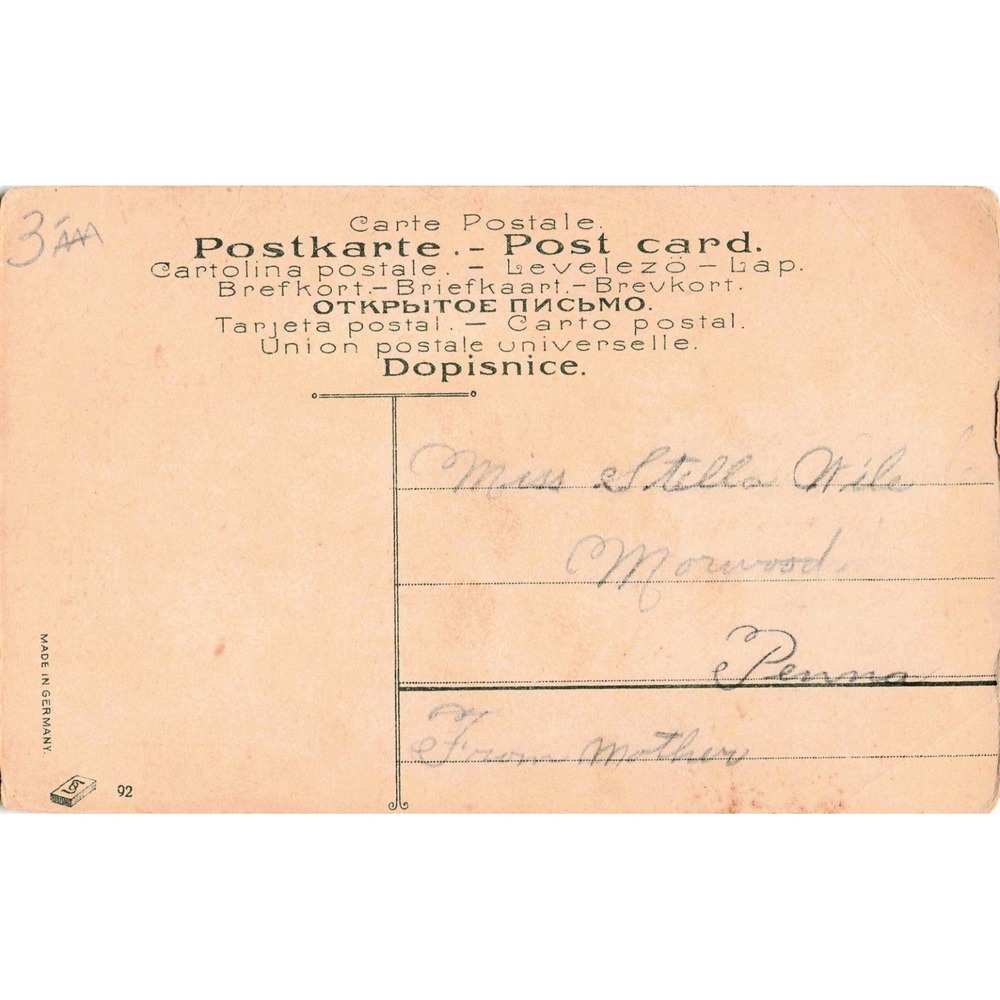 3
Carte Postale.
Postkarte. - Post card.
Cartolina postale. - Levelező - Lap.
Brefkort. - Briefkaart. - Brevkort.
ОТКРЫТОЕ ПИСЬМО.
Tarjeta postal. - Carto postal.
Union postale universelle.
Dopisnice.
Miss Stella Wile
Morwood.
Penna
From Mother
MADE IN GERMANY.
92